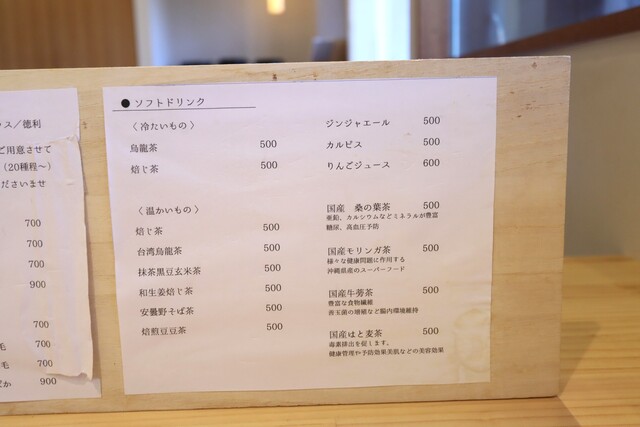 ス／徳利
ご用意させて
（20種程〜）
ださいませ
700
700
700
900
700
毛 700
毛 700
ばか 900
● ソフトドリンク
〈 冷たいもの 〉
烏龍茶 500
焙じ茶 500
ジンジャエール 500
カルピス 500
りんごジュース 600
〈 温かいもの 〉
焙じ茶 500
台湾烏龍茶 500
抹茶黒豆玄米茶 500
和生姜焙じ茶 500
安曇野そば茶 500
焙煎豆豆茶 500
国産 桑の葉茶 500
亜鉛、カルシウムなどミネラルが豊富
糖尿、高血圧予防
国産モリンガ茶 500
様々な健康問題に作用する
沖縄県産のスーパーフード
国産牛蒡茶 500
豊富な食物繊維
善玉菌の増殖など腸内環境維持
国産はと麦茶 500
毒素排出を促します。
健康管理や予防効果美肌などの美容効果